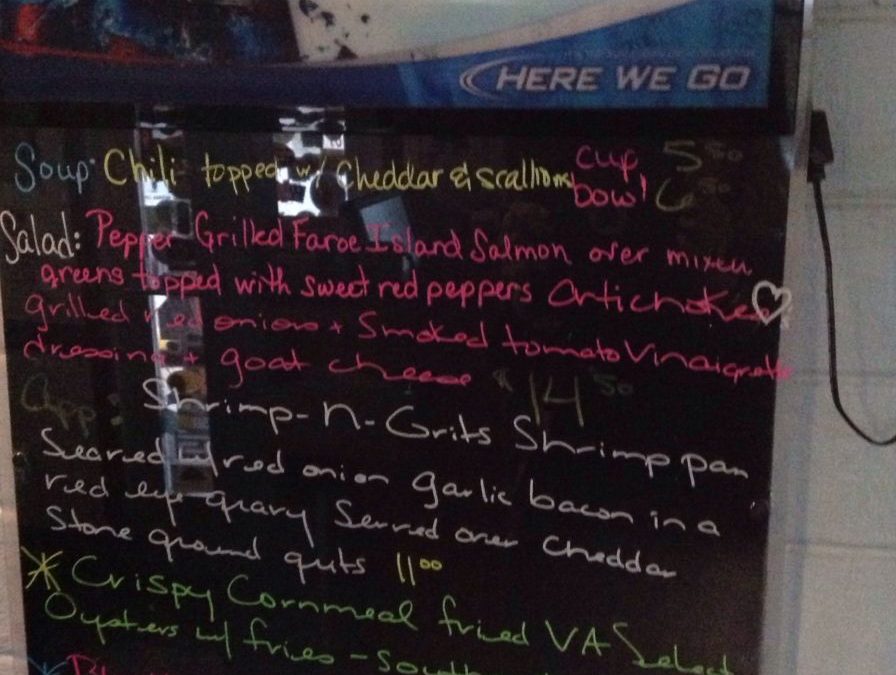 HERE WE GO
Soup: Chili topped w/ Cheddar & scallions cup 5 50
bowl 6 50
Salad: Pepper Grilled Faroe Island Salmon over mixed
greens topped with sweet red peppers artichokes
grilled red onions + Smoked tomato Vinaigrette
dressing + goat cheese $14 50
App: Shrimp-n-Grits Shrimp pan
Seared w/ red onion garlic bacon in a
red eye gravy Served over cheddar
Stone ground guts 11 00
Crispy Cornmeal fried VA Select
Oysters w/ fries - South